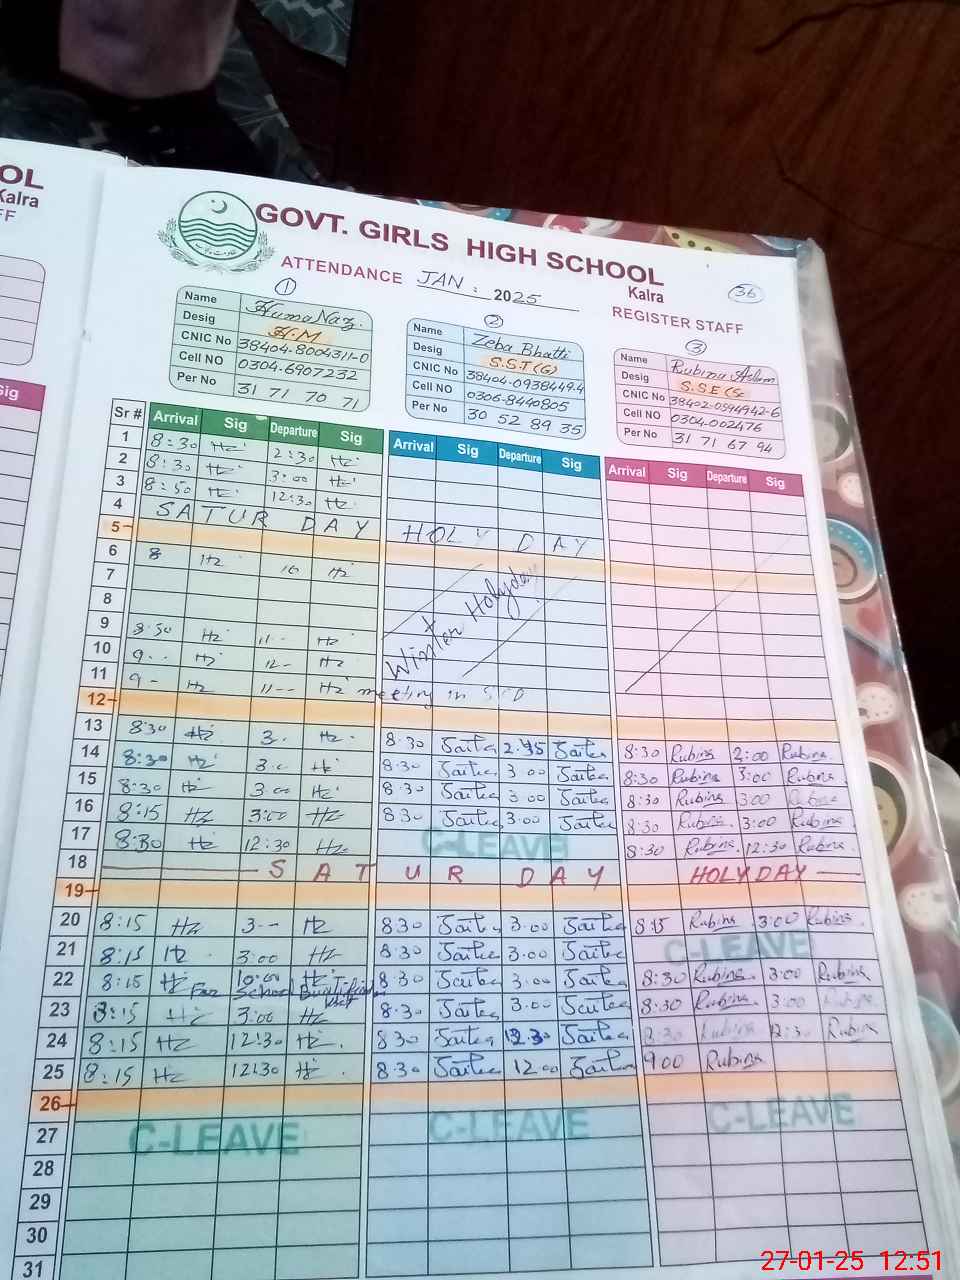 OL
Kalra
FF
GOVT. GIRLS HIGH SCHOOL
Kalra
ATTENDANCE JAN: 2025
REGISTER STAFF
36
1
Name Huma Naz
Desig H.M
CNIC No 38404-8004311-0
Cell NO 0304-6907232
Per No 31 71 70 71
2
Name Zeba Bhatti
Desig S.S.T(G)
CNIC No 38404-0938449-4
Cell NO 0306-8440805
Per No 30 52 89 35
3
Name Rubina Aslam
Desig S.S.E(Sc
CNIC No 38402-0594942-6
Cell NO 0304-002476
Per No 31 71 67 94
Sig
Sr # Arrival Sig Departure Sig Arrival Sig Departure Sig Arrival Sig Departure Sig
1 8:30 Hz 2:30 Hz
2 8:30 Hz 3:00 Hz
3 8:50 Hz 12:30 Hz
4 SATURDAY HOLYDAY
5
6 8 Hz 10 Hz
7
8
Winter Holyday
9 8:50 Hz 11-- Hz
10 9-- Hz 12- Hz
11 9- Hz 11-- Hz meeting in
12
13 8:30 Hz 3. Hz 8:30 2:45 8:30 Rubina 2:00 Rubina
14 8:30 Hz 3.0 Hz 8:30 3:00 8:30 Rubina 3:00 Rubina
15 8:30 Hz 3.00 Hz 8:30 3:00 8:30 Rubina 3:00 Rubina
16 8:15 Hz 3:00 Hz 8:30 3:00 8:30 Rubina 3:00 Rubina
17 8:30 Hz 12:30 Hz C-LEAVE 8:30 Rubina 12:30 Rubina
18 SATURDAY HOLYDAY
19
20 8:15 Hz 3-- Hz 8:30 3:00 8:15 Rubina 3:00 Rubina
21 8:15 Hz 3:00 Hz 8:30 3:00 C-LEAVE
22 8:15 Hz 10:00 Hz 8:30 3:00 8:30 Rubina 3:00 Rubina
For School
23 8:15 Hz 3:00 Hz 8:30 3:00 8:30 Rubina 3:00 Rubina
24 8:15 Hz 12:30 Hz 8:30 12:30 8:30 Rubina 12:30 Rubina
25 8:15 Hz 12:30 Hz 8:30 12:00 9:00 Rubina
26
27 C-LEAVE C-LEAVE C-LEAVE
28
29
30
31
27-01-25 12:51